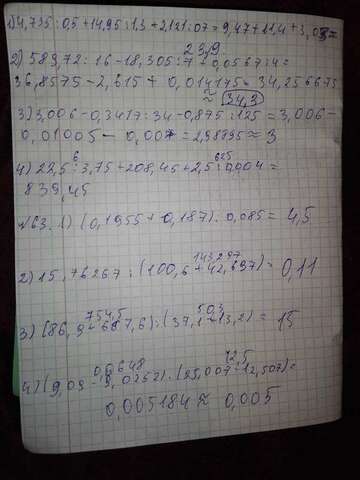 1) 4,735:0,5+14,95:1,3+2,121:07=9,47+11,4+3,03=
23,9
2) 589,72:16-18,305:7+0,0567:4=
36,8575-2,615+0,014175=34,256675
≈ 34,3
3) 3,006-0,3417:34-0,875:125=3,006-
0,01005-0,007=2,98895≈3
6 625
4) 22,5:3,75+208,45+2,5:0,004=
839,45
√63. 1) (0,1955+0,187):0,085=4,5
143,297
2) 15,76267:(100,6+42,697)=0,11
754,5 50,3
3) (86,9+667,6):(37,1+13,2)=15
0,0648 12,5
4) (9,09-9,0252):(25,007-12,507)=
0,005184≈0,005